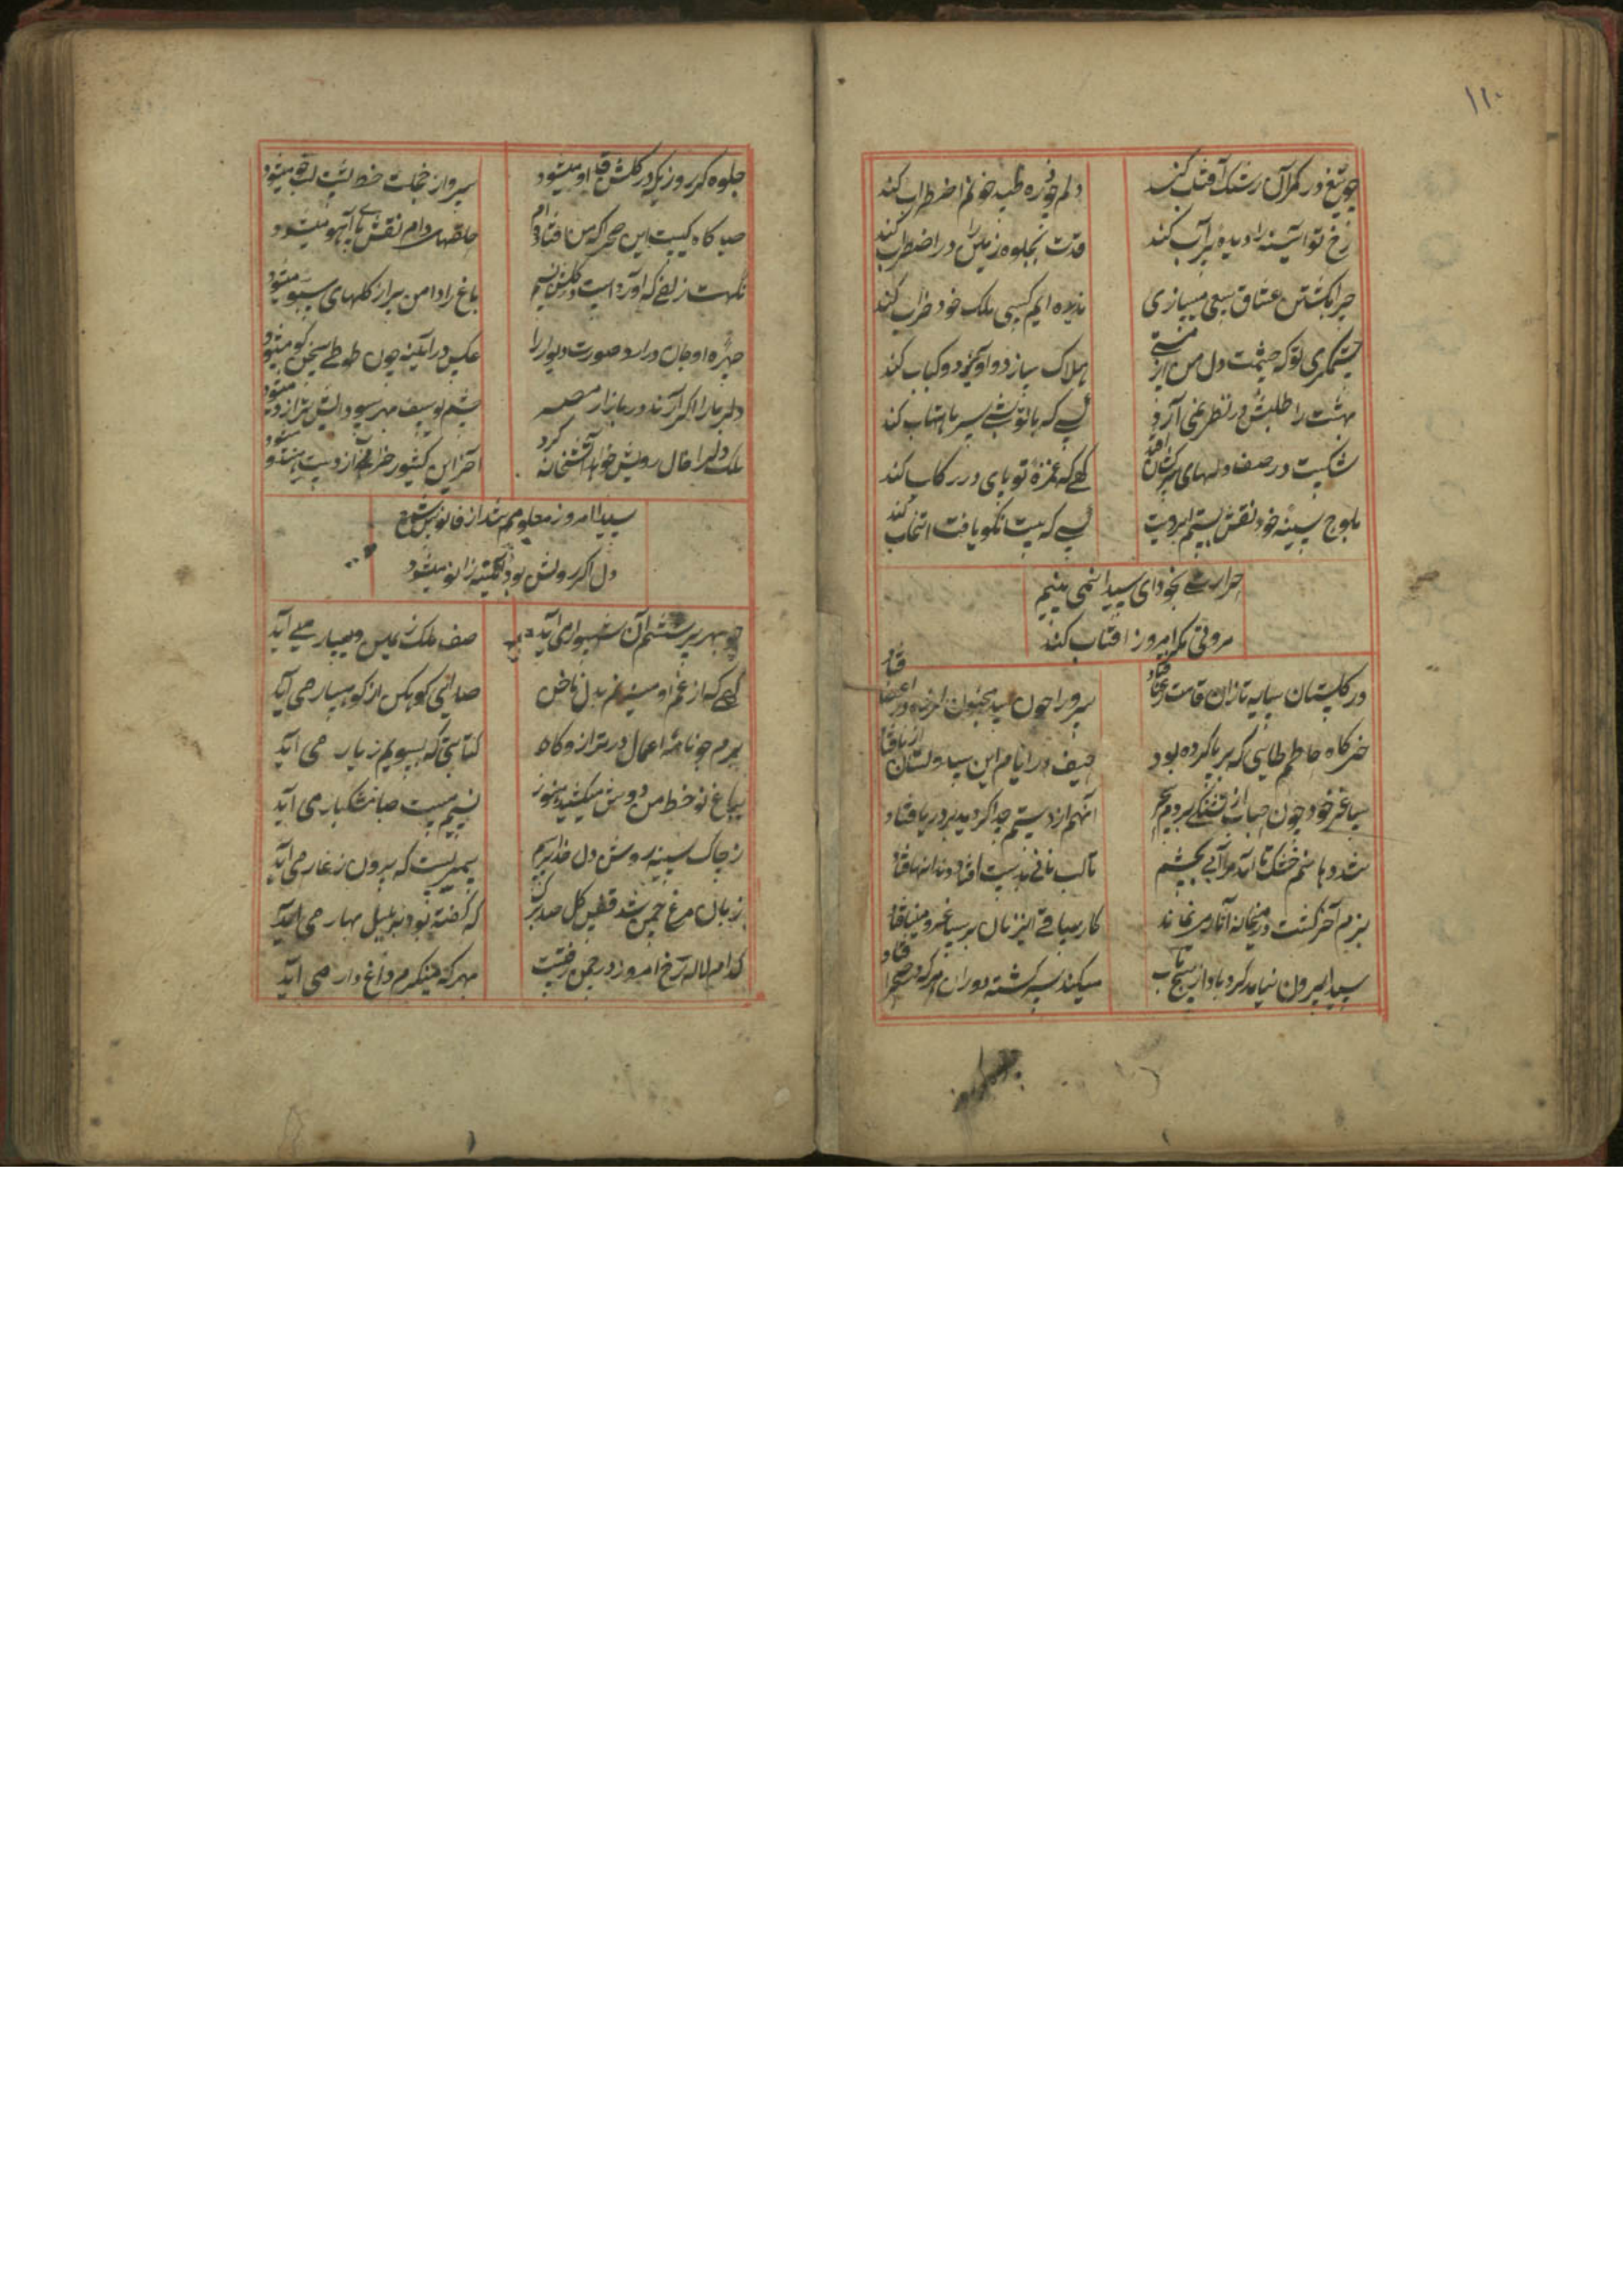 ۱۱۰
چو تیغ در کمر آن رشک آفتاب کند
دلم چو ذره طپد خونم اضطراب کند
رخ تو آینه را دیده پر آب کند
قدت بجلوه زمین را در اضطراب کند
چرا بکشتن عشاق سعی میسازی
ندیده ایم کسی ملک خود خراب کند
ستمگری تو که چشمت دل من از مستی
هلاک سازد و آویزد و کباب کند
بهشت را طلبش در نظر نمی آرد
کسی که با تو شبی سیر ماهتاب کند
شکست در صف دلهای افتد
گهی که غمزه تو پای در رکاب کند
بلوح سینه خود نقش بستم ابرویت
کسی که بیت نکو یافت انتخاب کند
حرارت بخود ای سیدا نمی بینم
مروتی مگر امروز آفتاب کند
در گلستان سایه تا زان قامت رعنا فتاد
سرو را چون بید مجنون لرزه در اعضا فتاد
خرگاه حاطم طایی که بر پا کرده بود
حیف در ایام این سیه دولتان از پا فتاد
ساغر خود چون حباب از تشنگی بردم ببحر
آنهم از دستم جدا گردید در دریا فتاد
شد دهانم خشک تا آمد مرا آبی بچشم
تا لب نانی بدست افتاد دندانها فتاد
بزم آخر گشت در میخانه آثاری نماند
کار ساقی این زمان بر ساغر و مینا فتاد
سیدا بیرون نیامد گردباد از پیچ تاب
میکند سرگشته دوران هر که در صحرا فتاد
جلوه گر روزیکه در گلشن قد او میشود
سرو از خجلت خط پشت لب جو میشود
صید گاه کیست این صحرا که من افتاده ام
حلقهای دام نقش پای آهو میشود
نکهت زلفی که آورد است در گلشن نسیم
باغ را دامن پر از گلهای شبو میشود
چهره او جان درآرد صورت دیوار را
عکس در آینه چون طوطی سخن گو میشود
دلبر ما را اگر آرند در بازار مصر
چشم یوسف بهر سودایش ترازو میشود
ملک دل را خال رویش خواهد آتشخانه کرد
آخر این کشور خراب از دست هندو میشود
سیدا امروز معلومم شد از فانوس شمع
دل اگر روشن بود آئینه زانو میشود
چو بهر پرسشم آن شهسوار می آید
صف ملک ز یمین و یسار می آید
گهی که از غم او میزنم بدل ناخن
صدای کوهکن از کوهسار می آید
برم چو نامه اعمال در ترازوگاه
کتابتی که بسویم ز یار می آید
بباغ نو خط من دوش میکشید هنوز
نسیم مست صبا مشکبار می آید
ز چاک سینه روشن دل خدا
پیمبریست که بیرون ز غار می آید
زبان مرغ چمن شد قطع گل صد برگ
که گفته بود به بلبل بهار می آید
کدام لاله رخ امروز در چمن رفتست
بهر که مینگرم داغ دار می آید